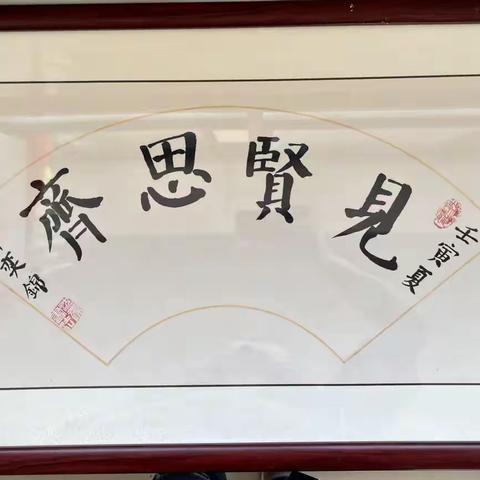 見賢思齊
壬寅夏
奕錦